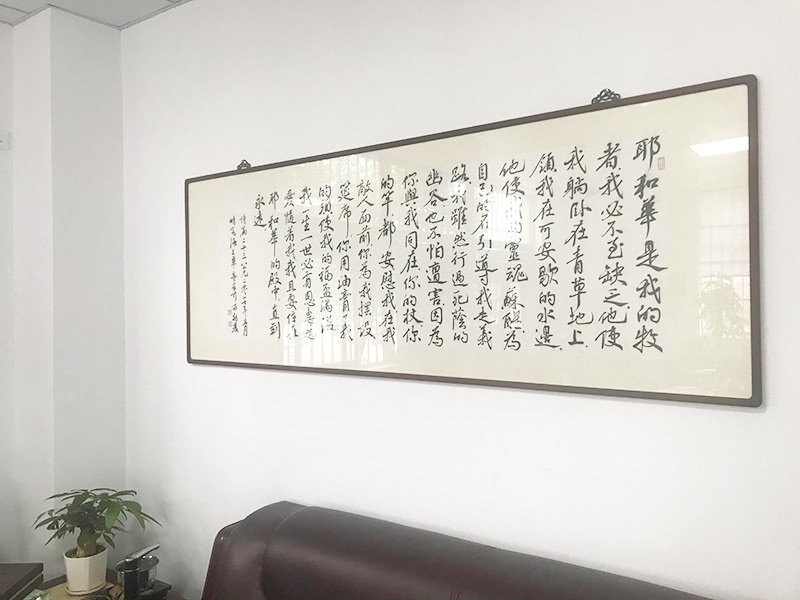 耶和華是我的牧
者我必不至缺乏他使
我躺卧在青草地上
領我在可安歇的水邊
他使我的靈魂蘇醒為
自己的名引導我走義
路我雖然行過死蔭的
幽谷也不怕遭害因為
你與我同在你的杖你
的竿都安慰我在我
敵人面前你為我擺設
筵席你用油膏我
的頭使我的福盃滿溢
我一生一世必有恩惠慈
愛隨着我我且要住在
耶和華的殿中直到
永遠
詩篇二十三